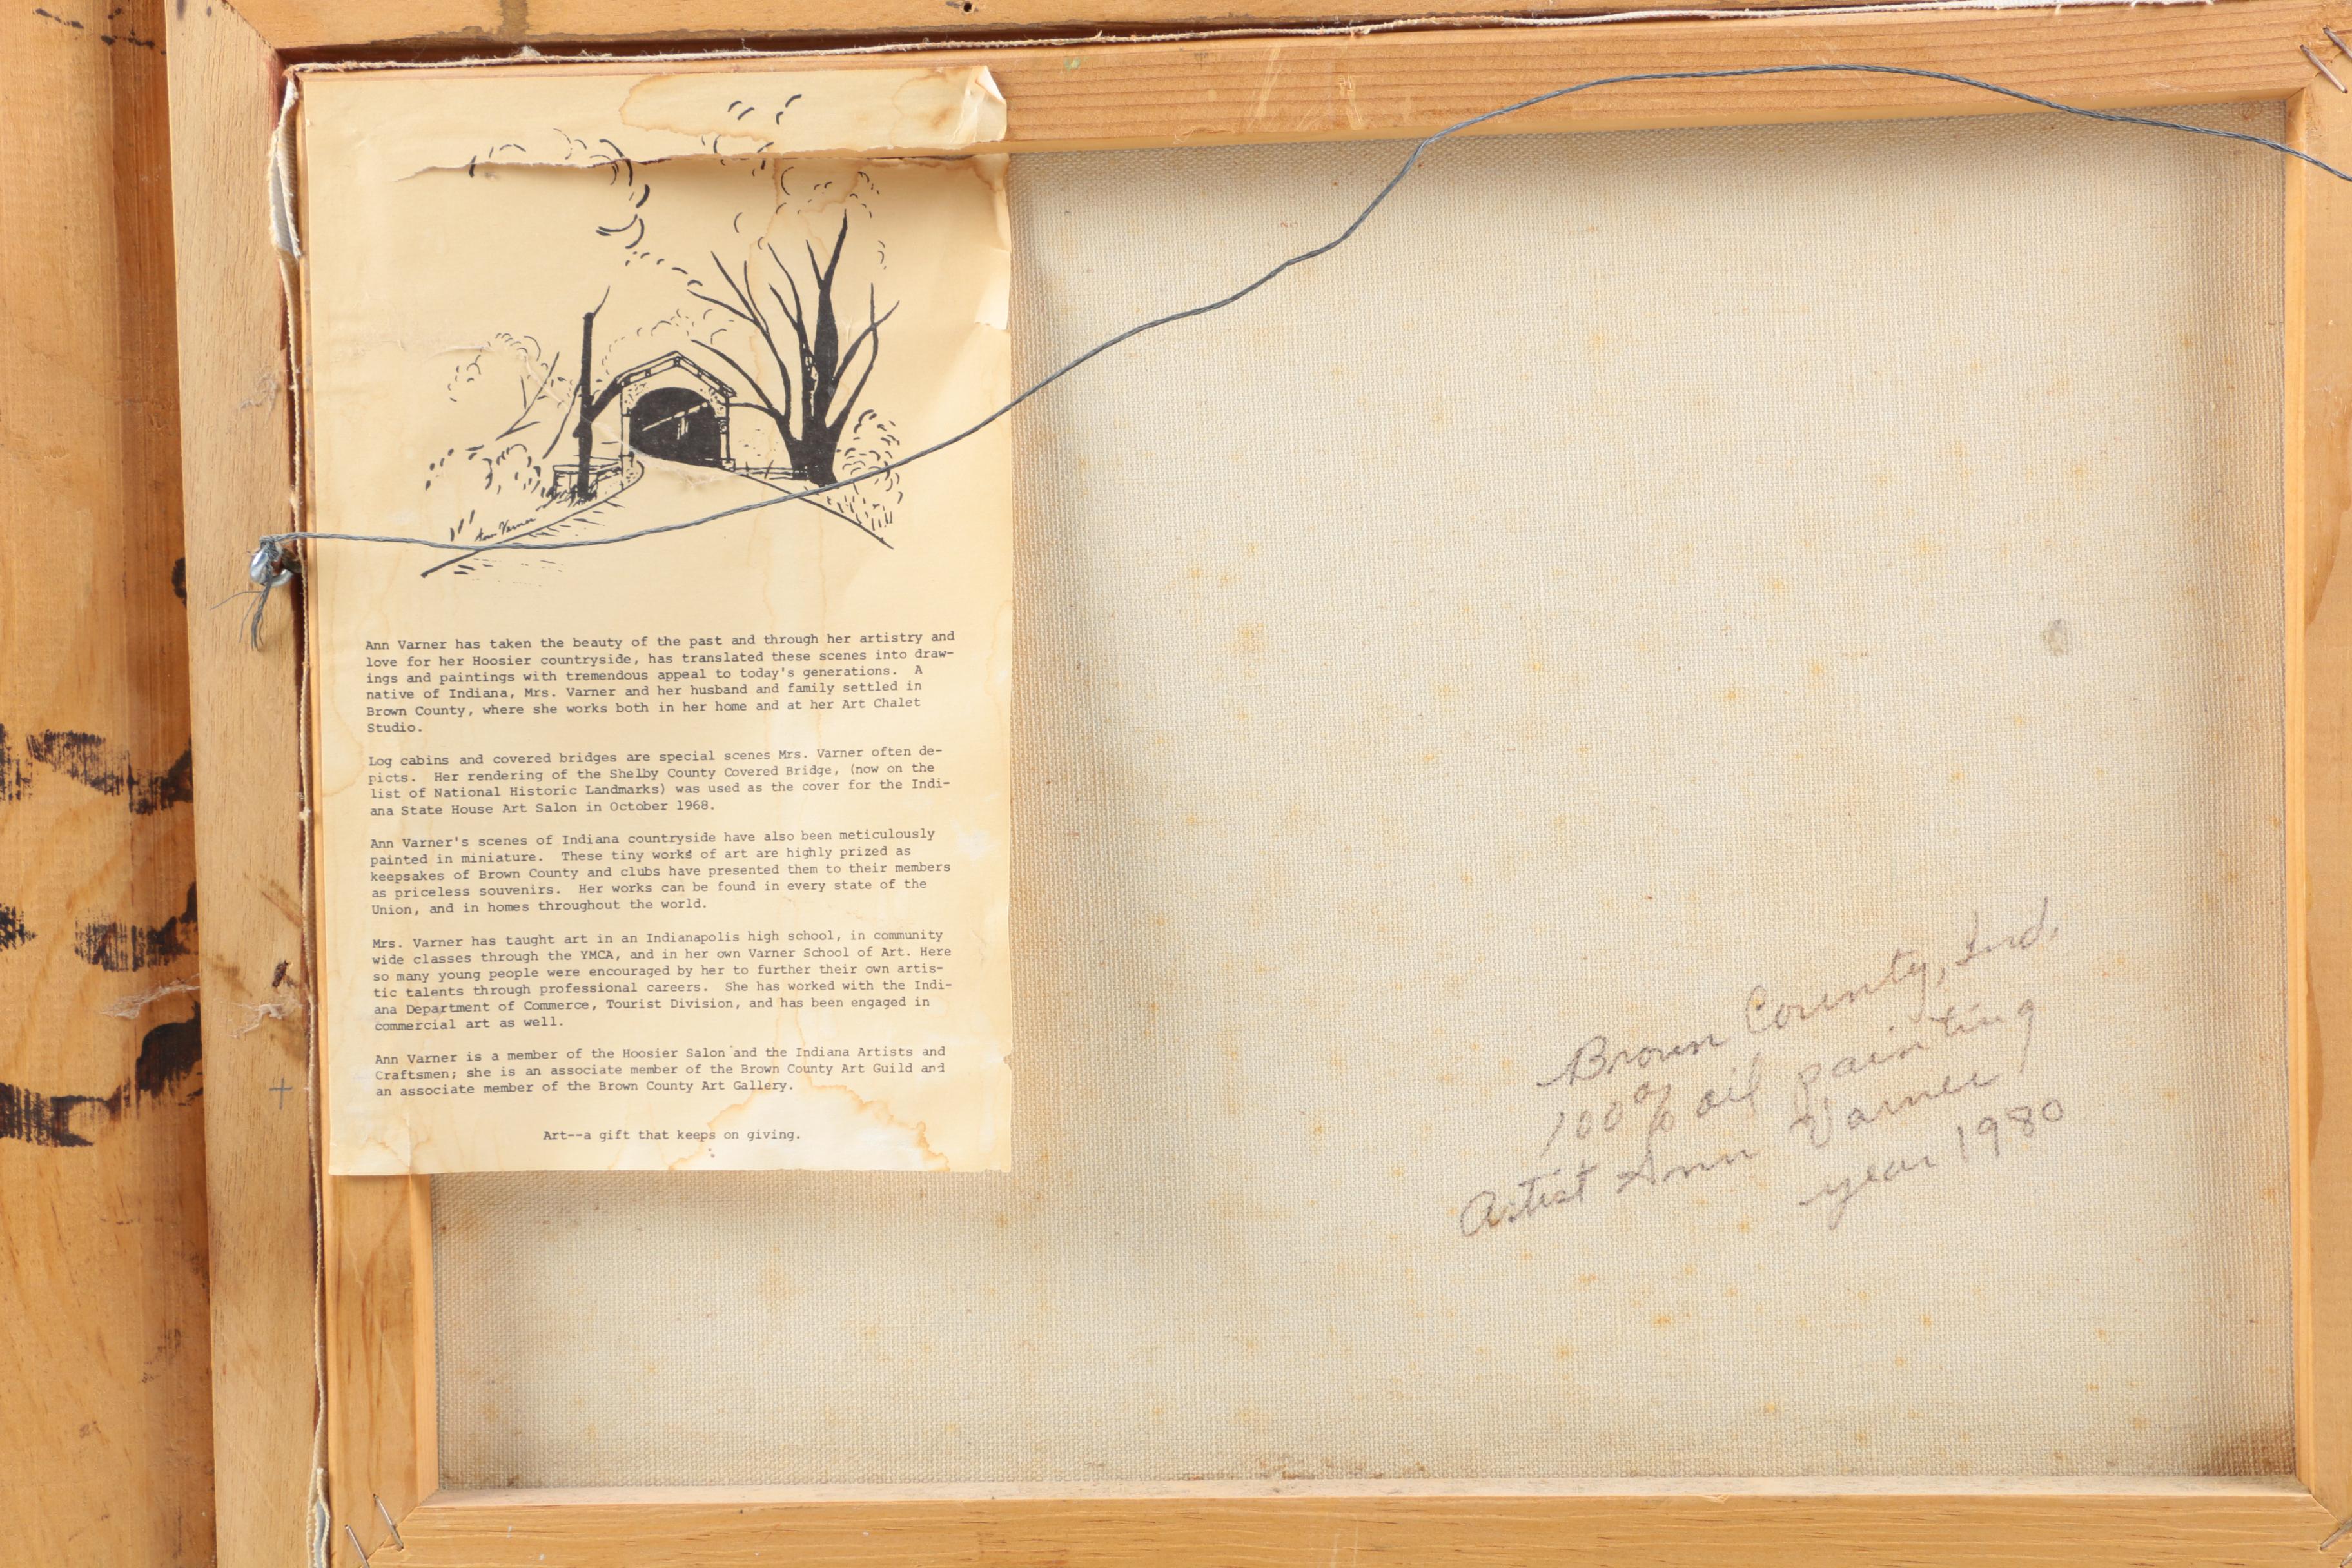 Ann Varner
Ann Varner has taken the beauty of the past and through her artistry and
love for her Hoosier countryside, has translated these scenes into draw-
ings and paintings with tremendous appeal to today's generations.  A
native of Indiana, Mrs. Varner and her husband and family settled in
Brown County, where she works both in her home and at her Art Chalet
Studio.
Log cabins and covered bridges are special scenes Mrs. Varner often de-
picts.  Her rendering of the Shelby County Covered Bridge, (now on the
list of National Historic Landmarks) was used as the cover for the Indi-
ana State House Art Salon in October 1968.
Ann Varner's scenes of Indiana countryside have also been meticulously
painted in miniature.  These tiny works of art are highly prized as
keepsakes of Brown County and clubs have presented them to their members
as priceless souvenirs.  Her works can be found in every state of the
Union, and in homes throughout the world.
Mrs. Varner has taught art in an Indianapolis high school, in community
wide classes through the YMCA, and in her own Varner School of Art. Here
so many young people were encouraged by her to further their own artis-
tic talents through professional careers.  She has worked with the Indi-
ana Department of Commerce, Tourist Division, and has been engaged in
commercial art as well.
Ann Varner is a member of the Hoosier Salon and the Indiana Artists and
Craftsmen; she is an associate member of the Brown County Art Guild and
an associate member of the Brown County Art Gallery.
Art--a gift that keeps on giving.
Brown County, Ind.
100% oil painting
Artist Ann Varner
year 1980